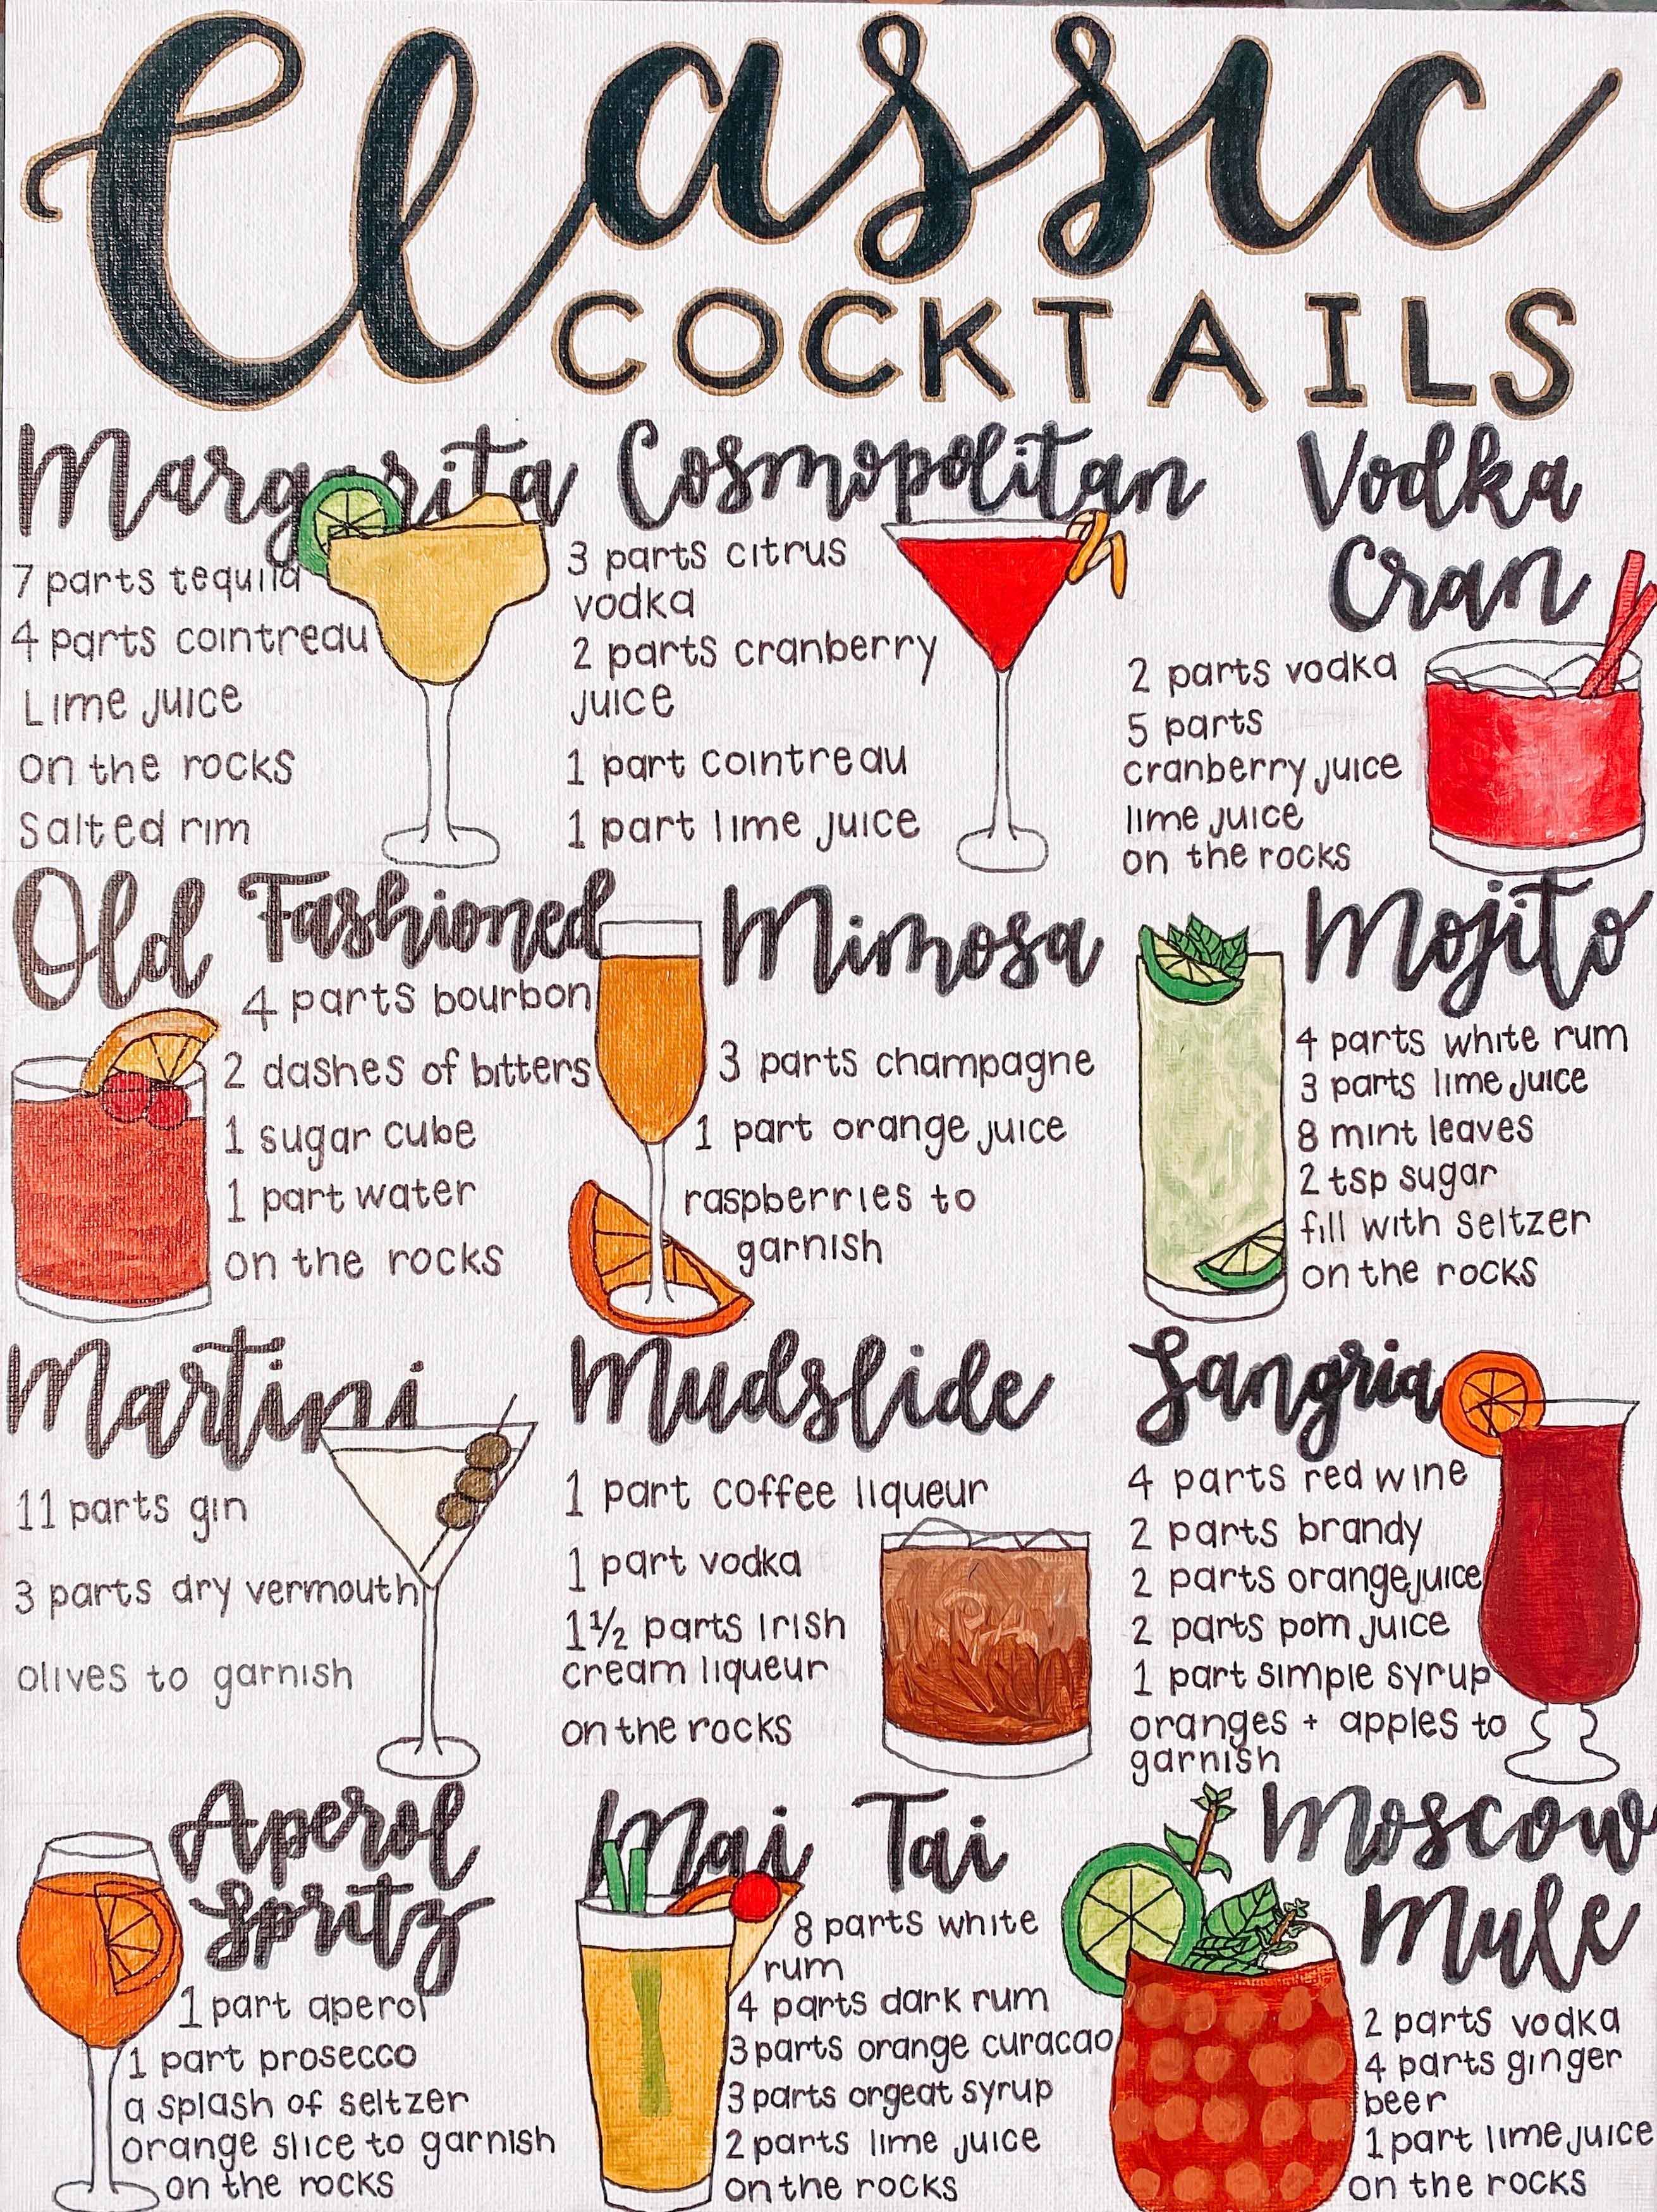 Classic
COCKTAILS
Margarita
7 parts tequila
4 parts cointreau
Lime juice
on the rocks
Salted rim
Cosmopolitan
3 parts citrus
vodka
2 parts cranberry
juice
1 part cointreau
1 part lime juice
Vodka
Cran
2 parts vodka
5 parts
cranberry juice
lime juice
on the rocks
Old Fashioned
4 parts bourbon
2 dashes of bitters
1 sugar cube
1 part water
on the rocks
Mimosa
3 parts champagne
1 part orange juice
raspberries to
garnish
Mojito
4 parts white rum
3 parts lime juice
8 mint leaves
2 tsp sugar
fill with seltzer
on the rocks
Martini
11 parts gin
3 parts dry vermouth
olives to garnish
Mudslide
1 part coffee liqueur
1 part vodka
1½ parts Irish
cream liqueur
on the rocks
Sangria
4 parts red wine
2 parts brandy
2 parts orange juice
2 parts pom juice
1 part simple syrup
oranges + apples to
garnish
Aperol
Spritz
1 part aperol
1 part prosecco
a splash of seltzer
orange slice to garnish
on the rocks
Mai Tai
8 parts white
rum
4 parts dark rum
3 parts orange curacao
3 parts orgeat syrup
2 parts lime juice
on the rocks
Moscow
Mule
2 parts vodka
4 parts ginger
beer
1 part lime juice
on the rocks